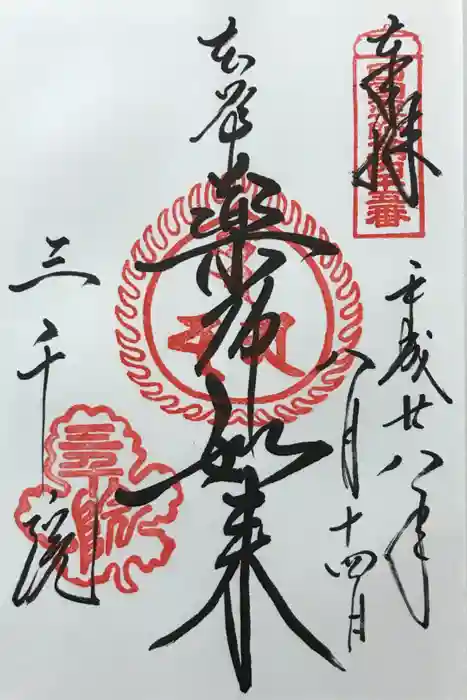 奉拝
平成廿八年
八月十四日
本尊
薬師如来
三千院
三千院